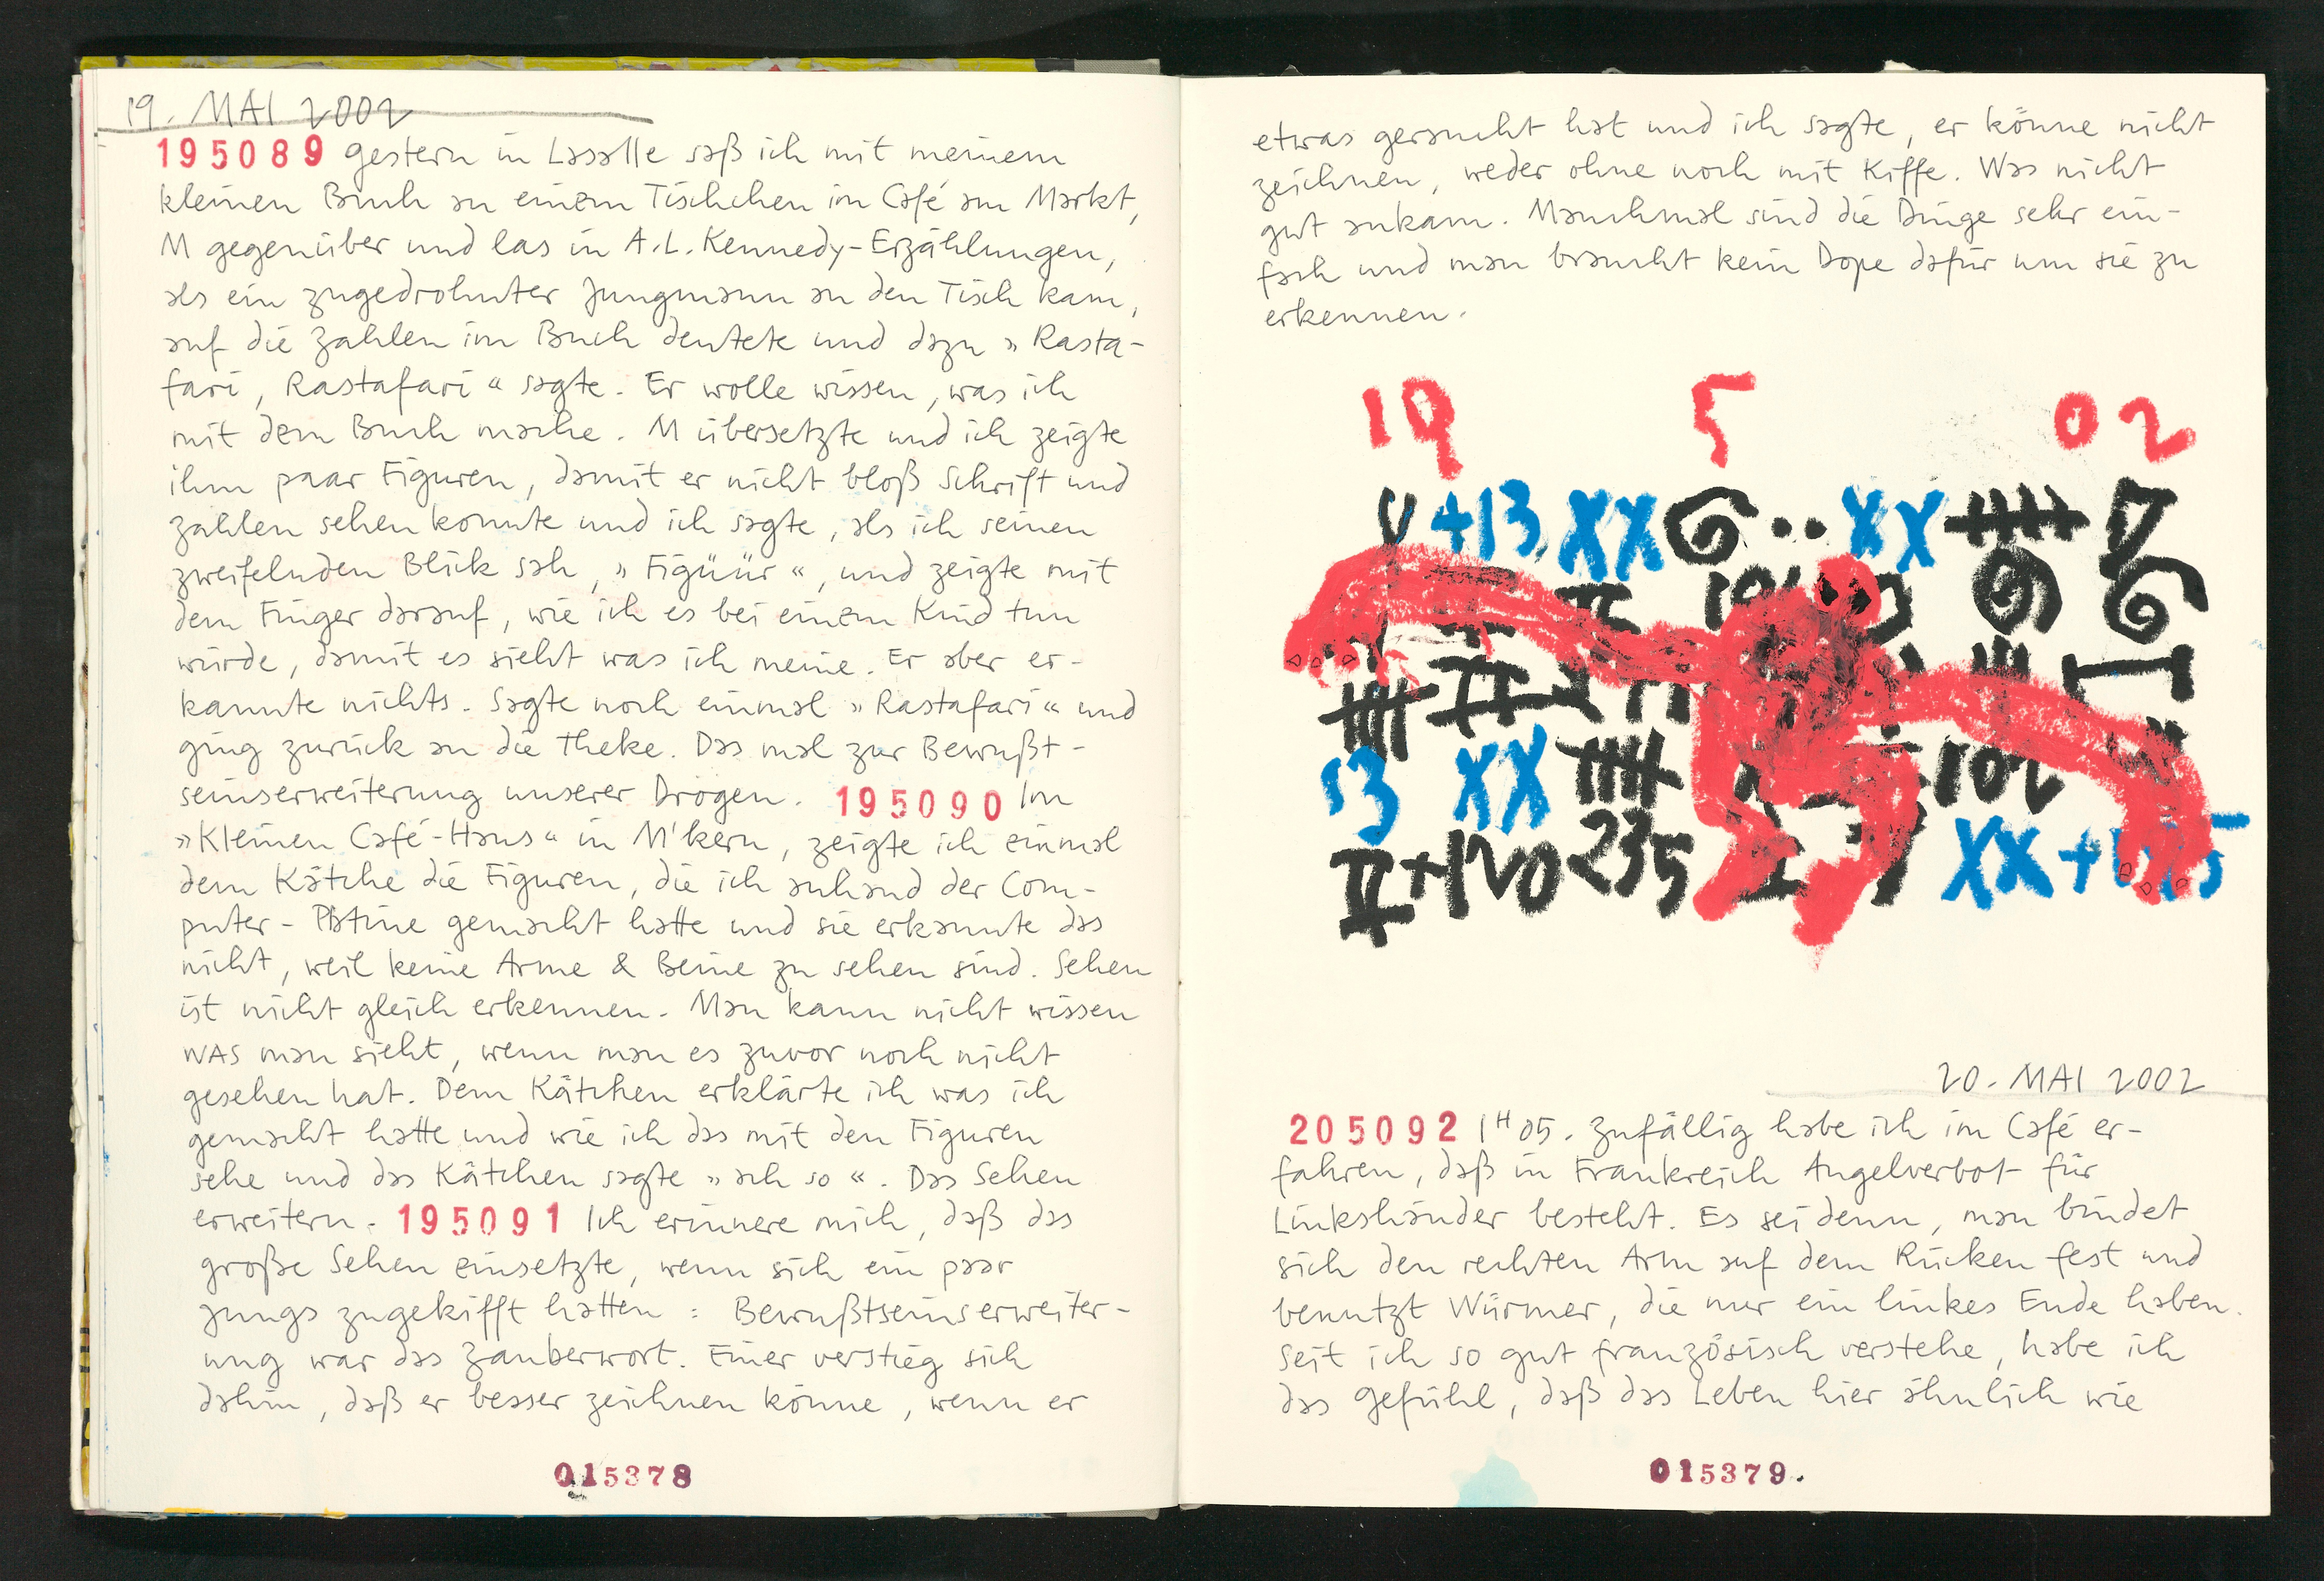 19. MAI 2002
195089 gestern in Lasalle saß ich mit meinem
kleinen Buch an einem Tischchen im Café am Markt,
M gegenüber und las in A.L. Kennedy-Erzählungen,
als ein zugedrohnter Jungmann an den Tisch kam,
auf die Zahlen im Buch deutete und dazu »Rasta-
fari, Rastafari« sagte. Er wolle wissen, was ich
mit dem Buch mache. M übersetzte und ich zeigte
ihm paar Figuren, damit er nicht bloß Schrift und
Zahlen sehen konnte und ich sagte, als ich seinen
zweifelnden Blick sah, »Figüür«, und zeigte mit
dem Finger darauf, wie ich es bei einem Kind tun
würde, damit es sieht was ich meine. Er aber er-
kannte nichts. Sagte noch einmal »Rastafari« und
ging zurück an die Theke. Das mal zur Bewußt-
seinserweiterung unserer Drogen. 195090 Im
»Kleinen Café-Haus« in M'kern, zeigte ich einmal
dem Kätche die Figuren, die ich anhand der Com-
puter-Platine gemacht hatte und sie erkannte das
nicht, weil keine Arme & Beine zu sehen sind. Sehen
ist nicht gleich erkennen. Man kann nicht wissen
WAS man sieht, wenn man es zuvor noch nicht
gesehen hat. Dem Kätchen erklärte ich was ich
gemacht hatte und wie ich das mit den Figuren
sehe und das Kätchen sagte »ach so«. Das Sehen
erweitern. 195091 Ich erinnere mich, daß das
große Sehen einsetzte, wenn sich ein paar
Jungs zugekifft hatten: Bewußtseinserweiter-
ung war das Zauberwort. Einer verstieg sich
dahin, daß er besser zeichnen könne, wenn er
015378
etwas geraucht hat und ich sagte, er könne nicht
zeichnen, weder ohne noch mit Kiffe. Was nicht
gut ankam. Manchmal sind die Dinge sehr ein-
fach und man braucht kein Dope dafür um sie zu
erkennen.
19 5 02
V +13 XX 6 .. XX
13 XX 102
II+120 235 XX+
20. MAI 2002
205092 1H05. Zufällig habe ich im Café er-
fahren, daß in Frankreich Angelverbot für
Linkshänder besteht. Es sei denn, man bindet
sich den rechten Arm auf dem Rücken fest und
benutzt Würmer, die nur ein linkes Ende haben.
Seit ich so gut französisch verstehe, habe ich
das Gefühl, daß das Leben hier ähnlich wie
015379.